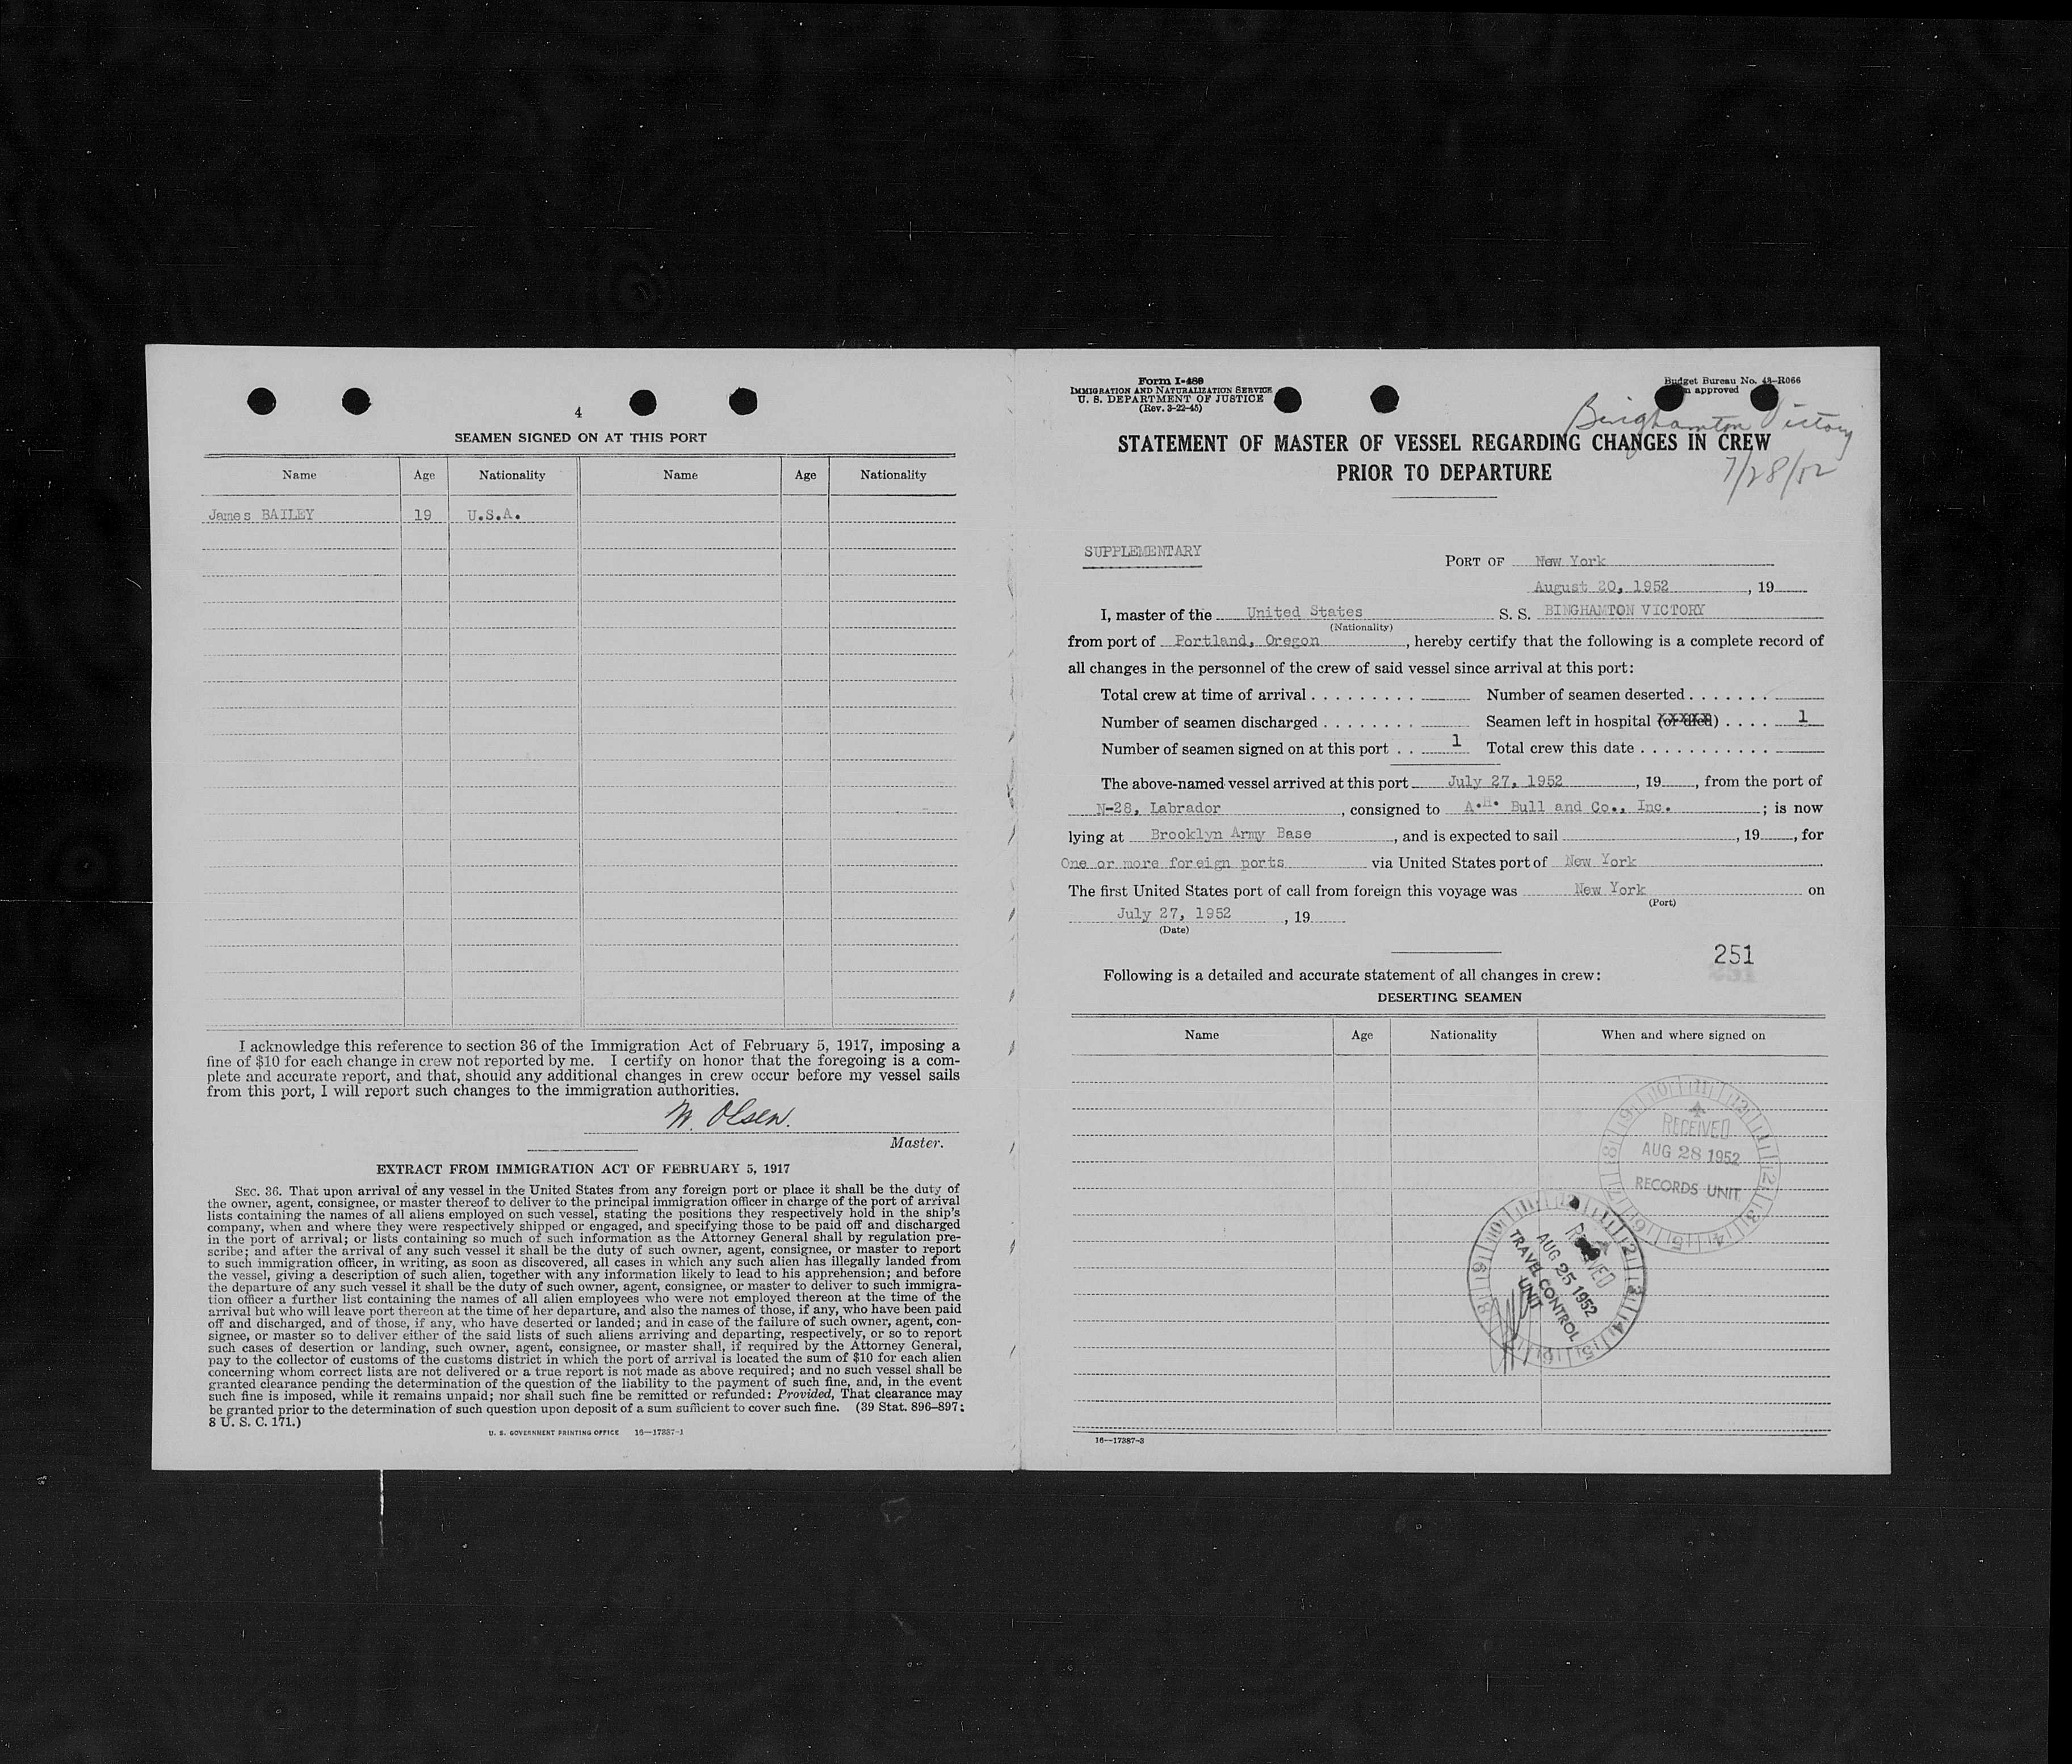 4
SEAMEN SIGNED ON AT THIS PORT
Name Age Nationality Name Age Nationality
James BAILEY 19 U.S.A.
I acknowledge this reference to section 36 of the Immigration Act of February 5, 1917, imposing a
fine of $10 for each change in crew not reported by me. I certify on honor that the foregoing is a com-
plete and accurate report, and that, should any additional changes in crew occur before my vessel sails
from this port, I will report such changes to the immigration authorities.
W. Olsen.
Master.
EXTRACT FROM IMMIGRATION ACT OF FEBRUARY 5, 1917
SEC. 36. That upon arrival of any vessel in the United States from any foreign port or place it shall be the duty of
the owner, agent, consignee, or master thereof to deliver to the principal immigration officer in charge of the port of arrival
lists containing the names of all aliens employed on such vessel, stating the positions they respectively hold in the ship's
company, when and where they were respectively shipped or engaged, and specifying those to be paid off and discharged
in the port of arrival; or lists containing so much of such information as the Attorney General shall by regulation pre-
scribe; and after the arrival of any such vessel it shall be the duty of such owner, agent, consignee, or master to report
to such immigration officer, in writing, as soon as discovered, all cases in which any such alien has illegally landed from
the vessel, giving a description of such alien, together with any information likely to lead to his apprehension; and before
the departure of any such vessel it shall be the duty of such owner, agent, consignee, or master to deliver to such immigra-
tion officer a further list containing the names of all alien employees who were not employed thereon at the time of the
arrival but who will leave port thereon at the time of her departure, and also the names of those, if any, who have been paid
off and discharged, and of those, if any, who have deserted or landed; and in case of the failure of such owner, agent, con-
signee, or master so to deliver either of the said lists of such aliens arriving and departing, respectively, or so to report
such cases of desertion or landing, such owner, agent, consignee, or master shall, if required by the Attorney General,
pay to the collector of customs of the customs district in which the port of arrival is located the sum of $10 for each alien
concerning whom correct lists are not delivered or a true report is not made as above required; and no such vessel shall be
granted clearance pending the determination of the question of the liability to the payment of such fine, and, in the event
such fine is imposed, while it remains unpaid; nor shall such fine be remitted or refunded: Provided, That clearance may
be granted prior to the determination of such question upon deposit of a sum sufficient to cover such fine. (39 Stat. 896-897;
8 U. S. C. 171.)
U. S. GOVERNMENT PRINTING OFFICE 16—17387-1
Form I-489
IMMIGRATION AND NATURALIZATION SERVICE
U. S. DEPARTMENT OF JUSTICE
(Rev. 3-22-45)
Budget Bureau No. 43-R066
approved
Binghamton Victory
7/28/52
STATEMENT OF MASTER OF VESSEL REGARDING CHANGES IN CREW
PRIOR TO DEPARTURE
SUPPLEMENTARY
PORT OF New York
August 20, 1952, 19
I, master of the United States S. S. BINGHAMTON VICTORY
(Nationality)
from port of Portland, Oregon, hereby certify that the following is a complete record of
all changes in the personnel of the crew of said vessel since arrival at this port:
Total crew at time of arrival . . . . . . . . . Number of seamen deserted . . . . . . .
Number of seamen discharged . . . . . . . . Seamen left in hospital (or died) . . . . 1
Number of seamen signed on at this port . . 1 Total crew this date . . . . . . . . . . .
The above-named vessel arrived at this port July 27, 1952, 19, from the port of
N-28, Labrador, consigned to A.H. Bull and Co., Inc.; is now
lying at Brooklyn Army Base, and is expected to sail , 19, for
One or more foreign ports via United States port of New York
The first United States port of call from foreign this voyage was New York on
(Port)
July 27, 1952, 19
(Date)
251
Following is a detailed and accurate statement of all changes in crew:
DESERTING SEAMEN
Name Age Nationality When and where signed on
RECEIVED
AUG 28 1952
RECORDS UNIT
RECEIVED
AUG 25 1952
TRAVEL CONTROL
UNIT
16—17387-3